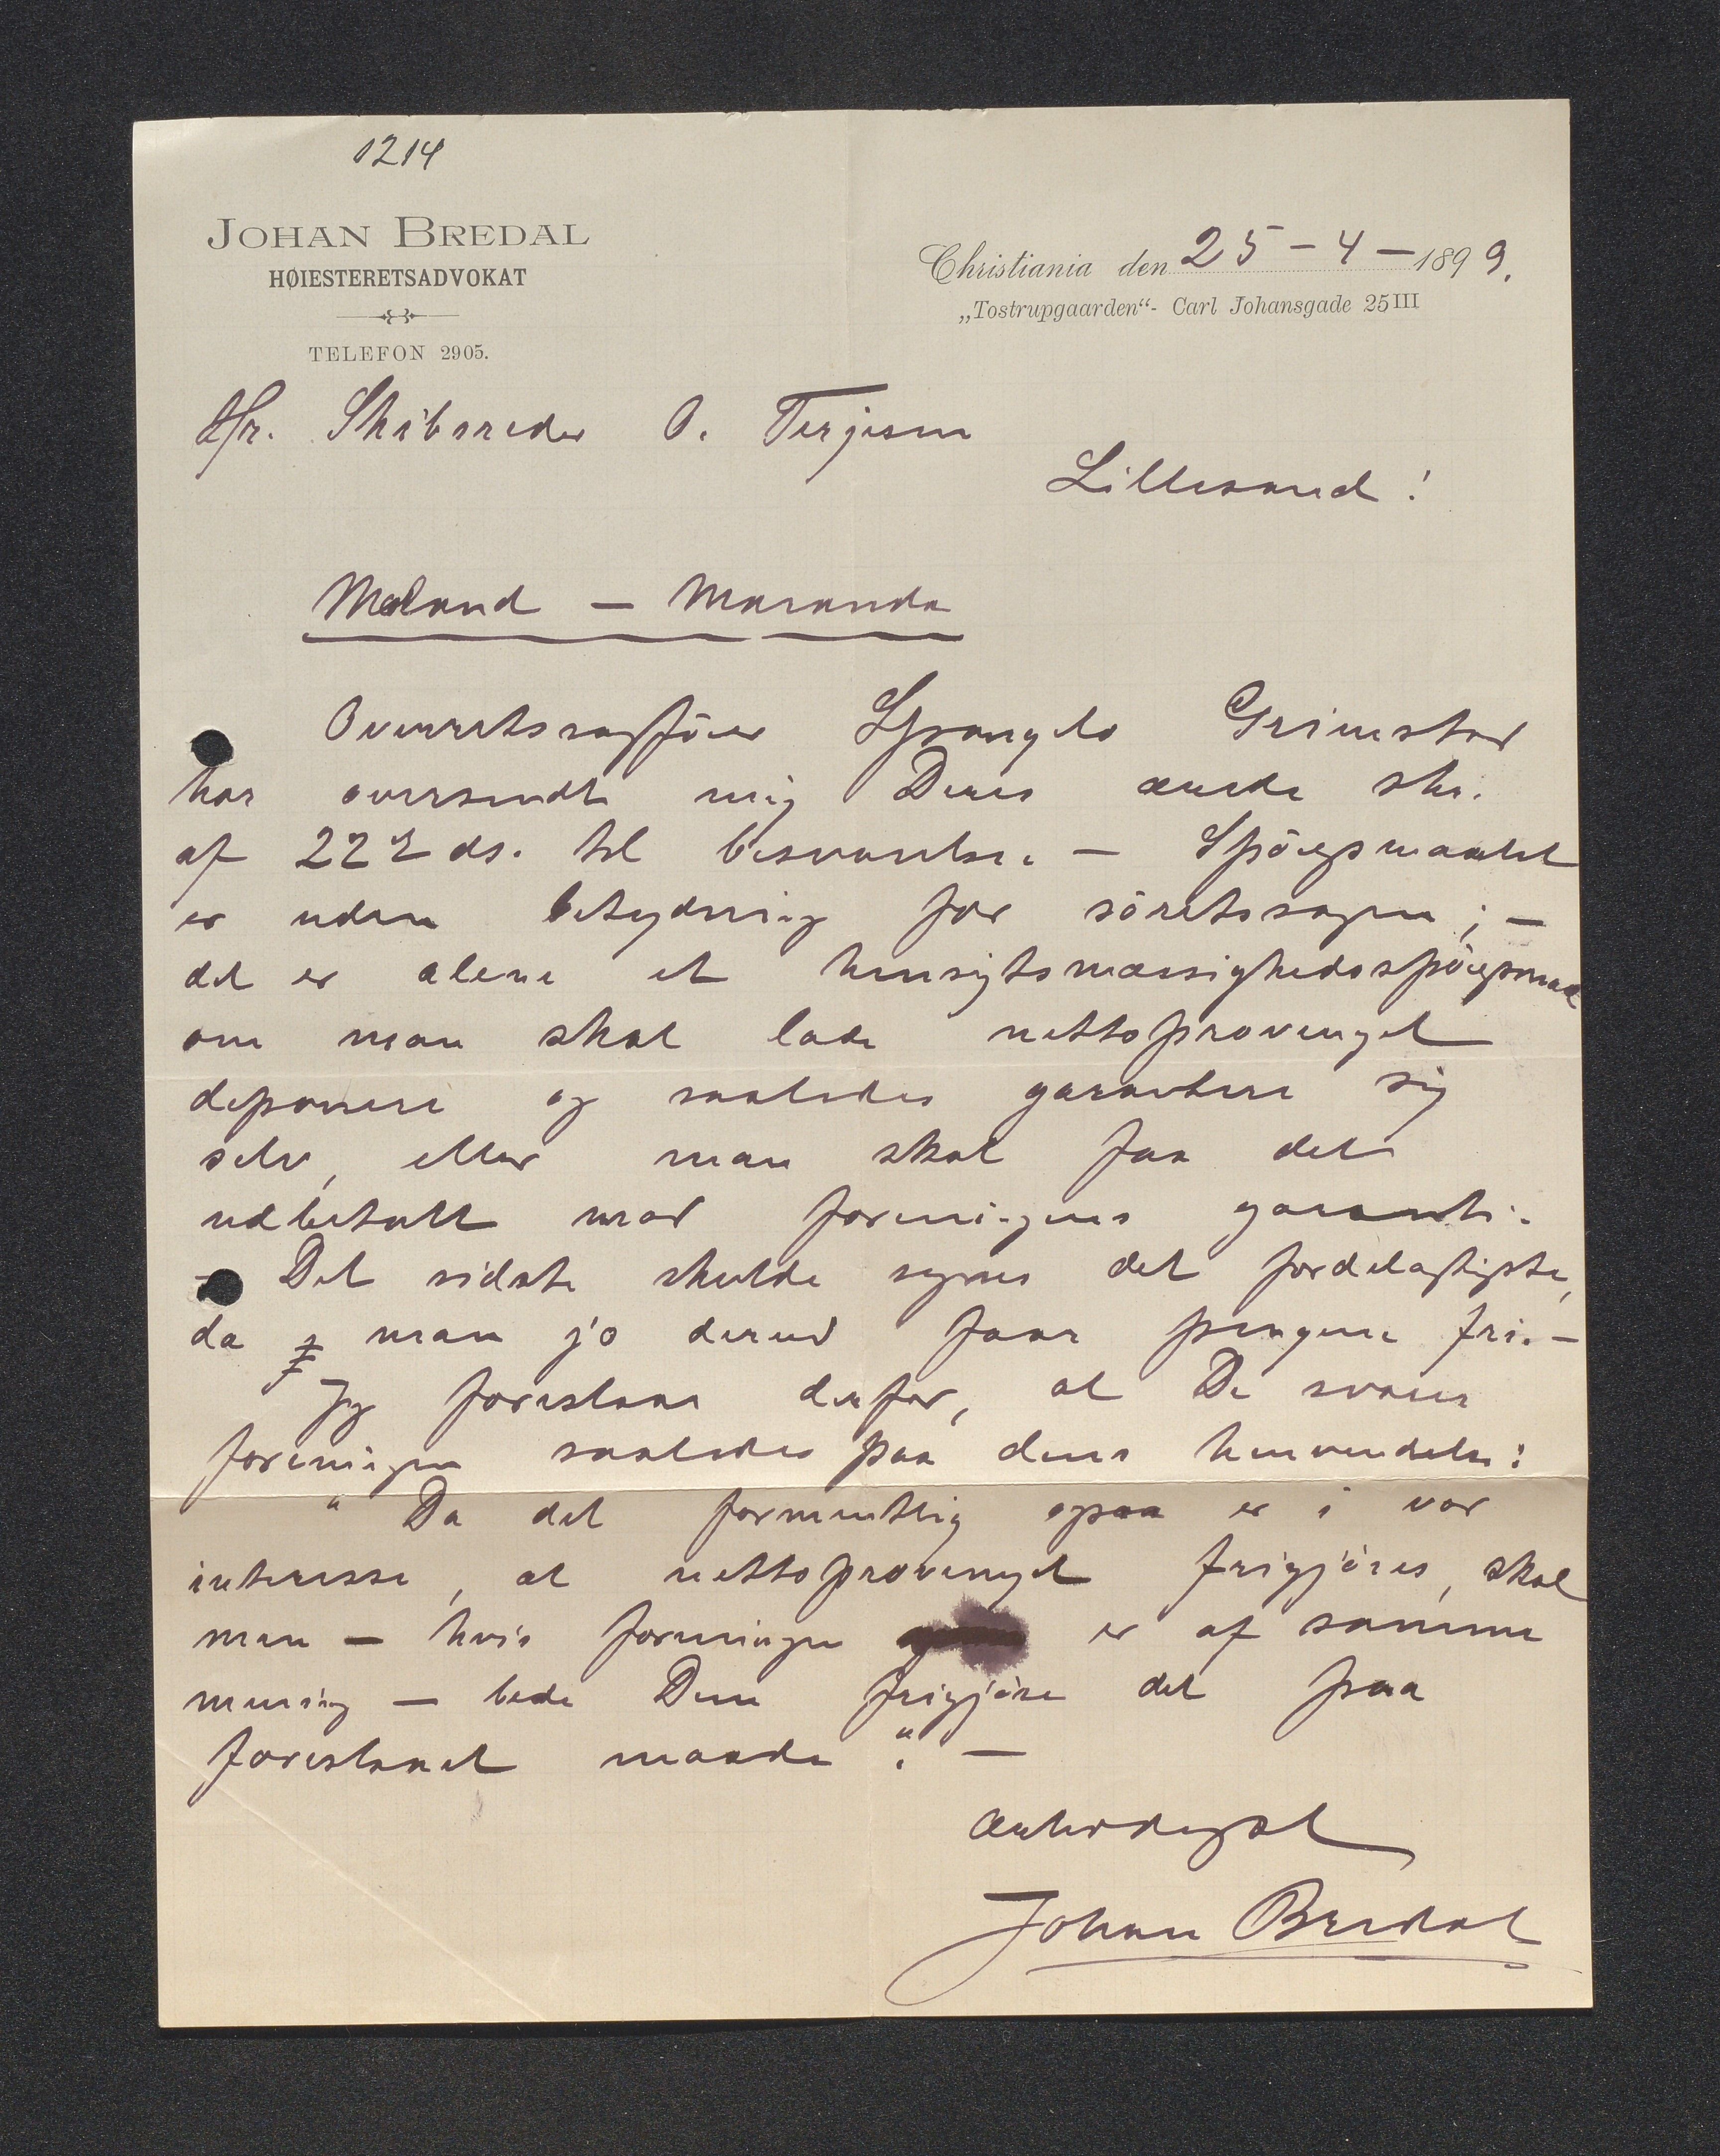 1214
JOHAN BREDAL
HØIESTERETSADVOKAT
TELEFON 2905.
Christiania den 25 - 4 - 1899.
„Tostrupgaarden“ - Carl Johansgade 25 III
Hr. Skibsreder O. Terjesen
Lillesand!
Mæland - Maranda
Overretssagfører Spangelo Grimstad
har oversendt mig Deres ærede skr.
af 22 ds. til besvarelse. - Spörgsmaalet
er uden betydning for söretssagen; -
det er alene et hensigtsmæssighedsspörgsmaal
om man skal lade nettoprovenyet
deponere og saaledes garantere sig
selv, eller man skal faa det
udbetalt mod foreningens garanti.
- Det sidste skulde synes det fordelagtigste,
da man jo derved faar pengene fri. -
Jeg foreslaar derfor, at De svarer
foreningen saaledes paa dens henvendelse:
"Da det formentlig ogsaa er i vor
interesse, at nettoprovenyet frigjöres, skal
man - hvis foreningen er af samme
mening - bede Dem frigjöre det paa
foreslaaet maade". -
Ærbødigst
Johan Bredal